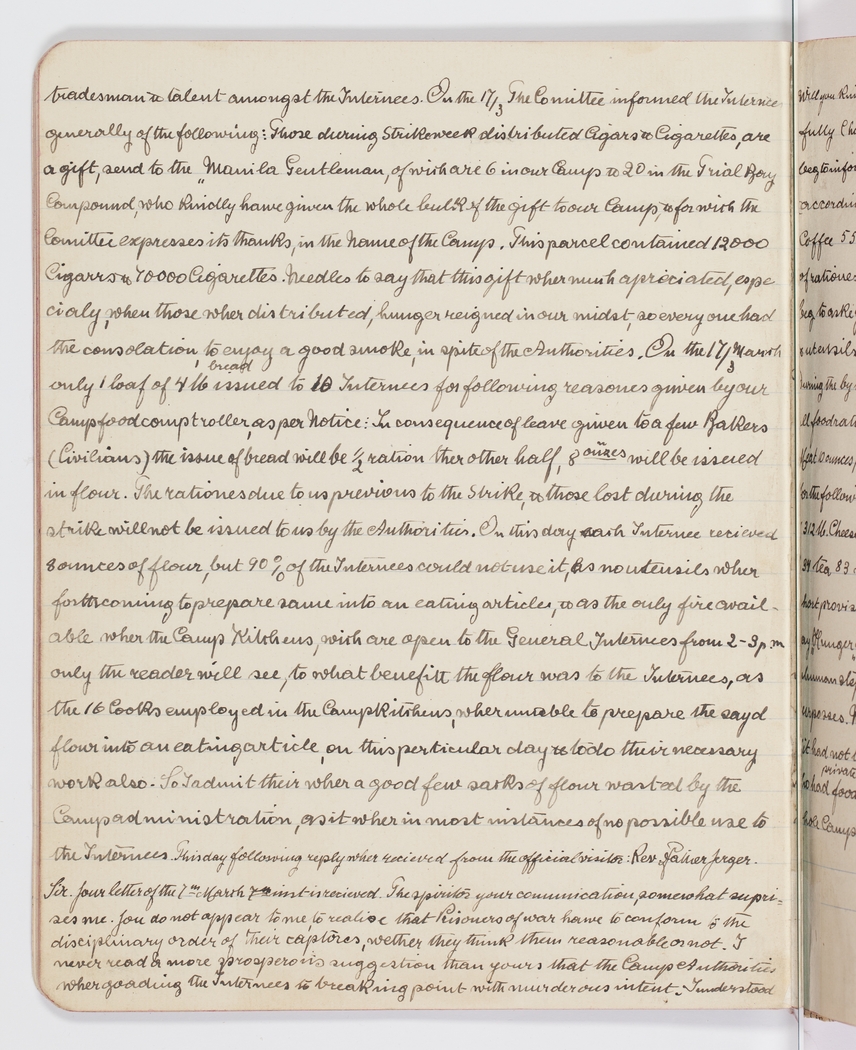 tradesman & talent amongst the Internees. On the 17/3 The Comittee informed the Internee
generally of the following: Those during Strikeweek distributed Cigars & Cigarettes, are
a gift, send to the "Manila Gentleman, of wich are 6 in our Camp & 20 in the Trial Bay
Compound, who kindly hawe given the whole bulk of the gift to our Camp, & for wich the
Comittee expresses its thanks, in the Name of the Camp. This parcel contained 12000
Cigarrs & 70000 Cigarettes. Needles to say that this gift wher much apreciated, espe
cialy, when those wher distributed, hunger reigned in our midst, so every one had
the consolation, to enjoy a good smoke, in spite of the Authorities. On the 17/3 March
only 1 loaf of 4 lb bread issued to 10 Internees for following reasones given by our
Campfoodcomptroller, as per Notice: In consequence of leave given to a few Bakers
(Civilians) the issue of bread will be 1/2 ration ther other half, 8 ounzes will be issued
in flour. The rationes due to us previous to the Strike, & those lost during the
strike will not be issued to us by the Authoritis. On this day each Internee recieved
8 ounces of flour, but 90% of the Internees could not use it, as no utensils wher
forthcoming to prepare same into an eating articles, & as the only fire avail-
able wher the Camp Kitchens, wich are open to the General Internees from 2-3 p.m
only the reader will see, to what benefitt the flour was to the Internees, as
the 16 Cooks employed in the Campkitchens, wher unable to prepare the sayd
flour into an eatingarticle, on this perticular day & to do their necessary
work also. So I admit their wher a good few sacks of flour wasted by the
Campadministration, as it wher in most instances of no possible use to
the Internees. This day following reply wher recieved from the official visitor: Rev. Father Jerger.
Sir. Your letter of the 7th March inst is recieved. The spirit of your communication, somewhat supri=
ses me. You do not appear to me, to realise that Prisoners of war hawe to conform to the
disciplinary order of their captores, wether they think them reasonable or not. I
never read a more prosperous suggestion than yours that the Camp Authorities
wher goading the Internees to breaking point with murderous intent. I understood